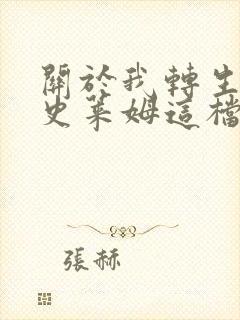 關於我轉生
史萊姆這檔
張赫